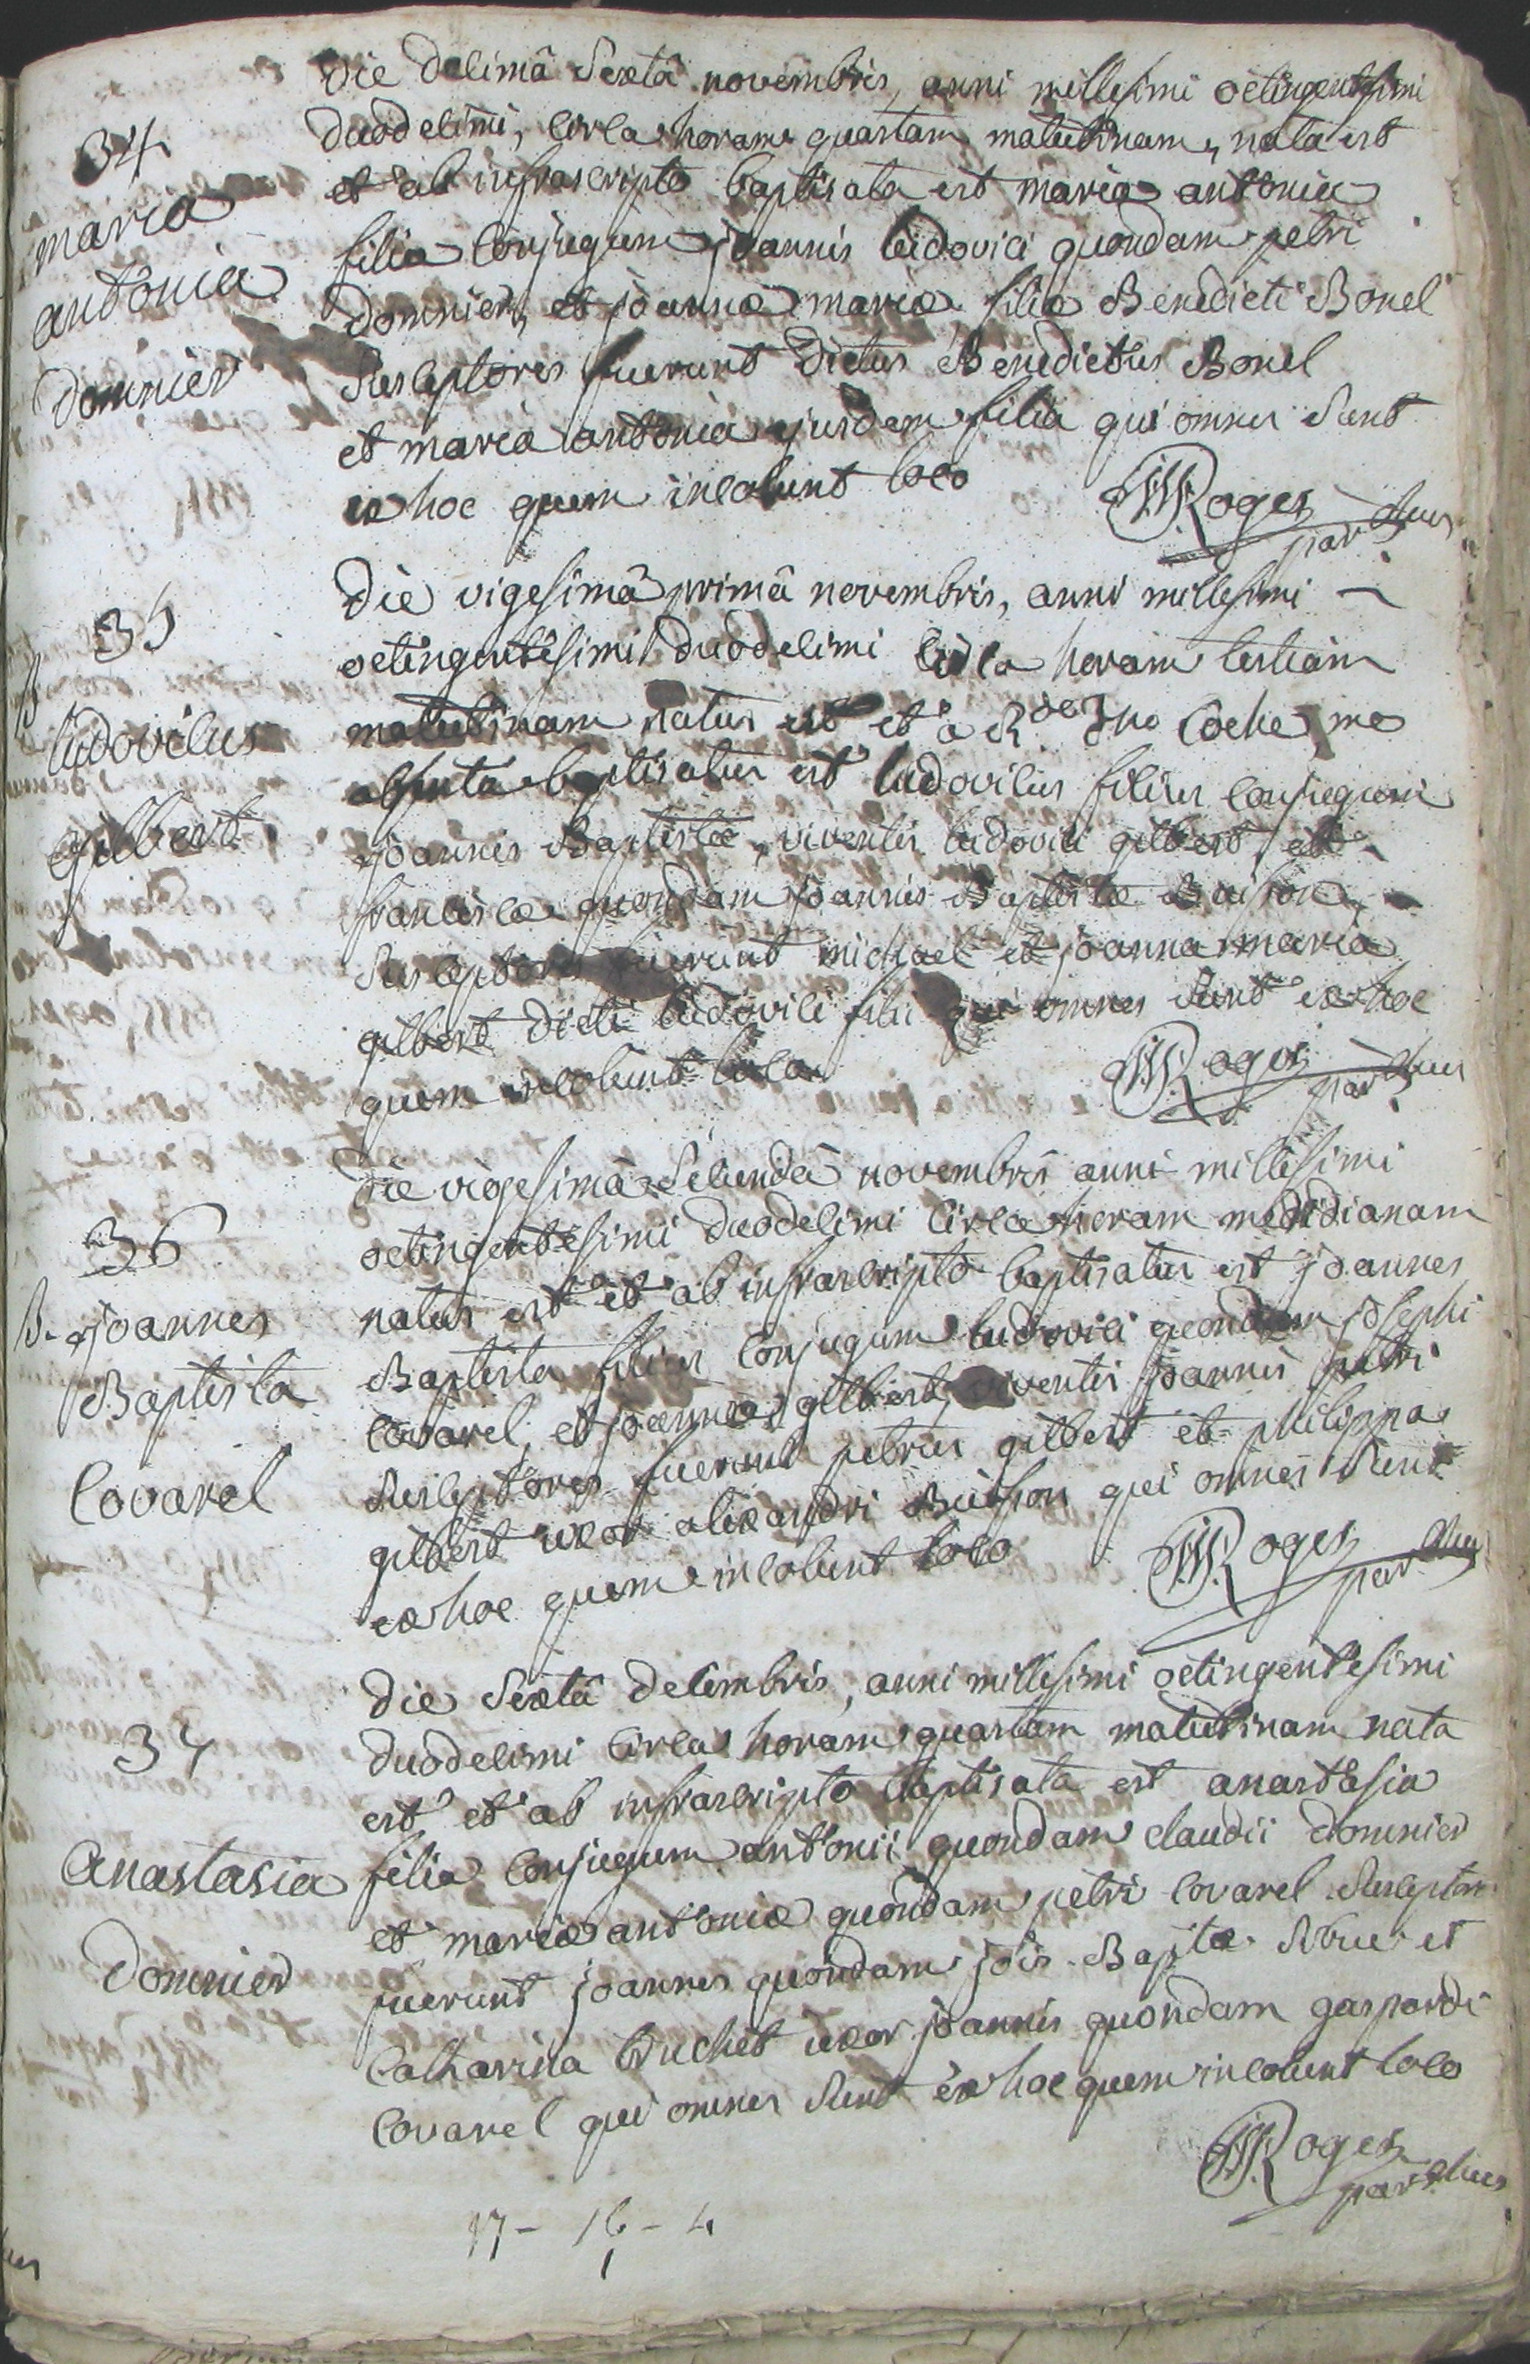 34
maria
antonia
domnier
Die decimâ Sextâ novembris, anni millesimi octingentesimi
duodecimi, circa horam quartam matutinam, nata est
et ab infrascripto baptisata est maria antonia
filia conjugum joannis ludovici quondam petri
domnier, et joannæ mariæ filiæ Benedicti Bonel
Susceptores fuerunt dictus Benedictus Bonel
et maria antonia ejusdem filia qui omnes sunt
ex hoc quem incolunt loco
Roges
par
35
B
ludovicus
gilbert
Die vigesimâ primâ novembris, anni millesimi
octingentesimi duodecimi circa horam tertiam
matutinam natus est et a Rdo Dno Coche, me
absente baptisatus est ludovicus filius conjugum
joannis Baptistæ, viventis ludovici gilbert, et
franciscæ quondam joannis Baptistæ Buisson,
Susceptores fuerunt michael et joanna maria
gilbert dicti ludovici filii qui omnes sunt ex hoc
quem incolunt loco
Roges
par
36
B. joannes
Baptista
Covarel
Die vigesimâ Secundâ novembris anni millesimi
octingentesimi duodecimi circa horam meridianam
natus est et ab infrascripto baptisatus est joannes
Baptista filius conjugum ludovici quondam josephi
covarel, et joannæ gilbert, viventis joannis petri
Susceptores fuerunt petrus gilbert et philippa
gilbert uxor alexandri Buisson qui omnes sunt
ex hoc quem incolunt loco
Roges
par
37
Anastasia
Domnier
Die Sextâ decembris, anni millesimi octingentesimi
duodecimi circa horam quartam matutinam nata
est et ab infrascripto baptisata est anastasia
filia conjugum antonii quondam claudii domnier
et mariæ antoniæ quondam petri covarel Susceptores
fuerunt joannes quondam jois Baptæ et
Catharina Bruchet uxor joannis quondam gaspardi
Covarel qui omnes sunt ex hoc quem incolunt loco
Roges
par
17 - 16 - 4